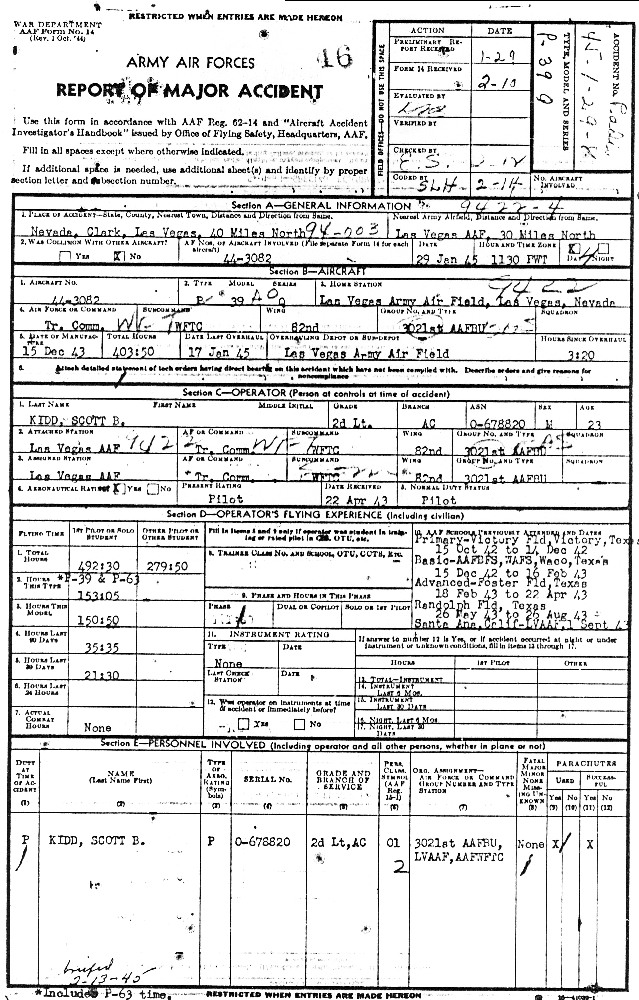 RESTRICTED WHEN ENTRIES ARE MADE HEREON
WAR DEPARTMENT
AAF Form No. 14
(Rev. 1 Oct. '44)
16
ARMY AIR FORCES
REPORT OF MAJOR ACCIDENT
Use this form in accordance with AAF Reg. 62-14 and "Aircraft Accident
Investigator's Handbook" issued by Office of Flying Safety, Headquarters, AAF.
Fill in all spaces except where otherwise indicated.
If additional space is needed, use additional sheet(s) and identify by proper
section letter and subsection number.
FIELD OFFICES—DO NOT USE THIS SPACE
ACTION DATE
PRELIMINARY REPORT RECEIVED 1-29
FORM 14 RECEIVED 2-10
EVALUATED BY
VERIFIED BY
CHECKED BY
CODED BY SLH 2-14
ACCIDENT NO. 45-1-29-8
TYPE, MODEL AND SERIES P-39Q
NO. AIRCRAFT INVOLVED
Section A—GENERAL INFORMATION 9422-4
1. PLACE OF ACCIDENT—State, County, Nearest Town, Distance and Direction from Same. Nearest Army Airfield, Distance and Direction from Same.
Nevada, Clark, Las Vegas, 40 Miles North 94-003 Las Vegas AAF, 30 Miles North
2. WAS COLLISION WITH OTHER AIRCRAFT? AF NOS. OF AIRCRAFT INVOLVED (File separate Form 14 for each aircraft) DATE HOUR AND TIME ZONE
Yes X No 44-3082 29 Jan 45 1130 PWT X DAY NIGHT
Section B—AIRCRAFT
1. AIRCRAFT NO. 2. TYPE MODEL SERIES 3. HOME STATION 9422
44-3082 P- 39 Q Las Vegas Army Air Field, Las Vegas, Nevada
4. AIR FORCE OR COMMAND SUBCOMMAND WING GROUP NO. AND TYPE SQUADRON
Tr. Comm. WFTC 82nd 3021st AAFBU
5. DATE OF MANUFACTURE TOTAL HOURS DATE LAST OVERHAUL OVERHAULING DEPOT OR SUB-DEPOT HOURS SINCE OVERHAUL
15 Dec 43 403:50 17 Jan 45 Las Vegas Army Air Field 3:20
6. Attach detailed statement of tech orders having direct bearing on this accident which have not been complied with. Describe orders and give reasons for
noncompliance
Section C—OPERATOR (Person at controls at time of accident)
1. LAST NAME FIRST NAME MIDDLE INITIAL GRADE BRANCH ASN SEX AGE
KIDD, SCOTT B. 2d Lt. AC O-678820 M 23
2. ATTACHED STATION AF OR COMMAND SUBCOMMAND WING GROUP NO. AND TYPE SQUADRON
Las Vegas AAF 9422 Tr. Comm. WFTC 82nd 3021st AAFBU
3. ASSIGNED STATION AF OR COMMAND SUBCOMMAND WING GROUP NO. AND TYPE SQUADRON
Las Vegas AAF Tr. Comm. WFTC 82nd 3021st AAFBU
4. AERONAUTICAL RATING? X Yes No PRESENT RATING DATE RECEIVED 5. NORMAL DUTY STATUS
Pilot 22 Apr 43 Pilot
Section D—OPERATOR'S FLYING EXPERIENCE (Including civilian)
FLYING TIME 1ST PILOT OR SOLO STUDENT OTHER PILOT OR STUDENT
1. TOTAL HOURS 492:30 279:50
2. HOURS THIS TYPE *P-39 & P-63 153:05
3. HOURS THIS MODEL 150:50
4. HOURS LAST 90 DAYS 35:35
5. HOURS LAST 30 DAYS 21:30
6. HOURS LAST 24 HOURS
7. ACTUAL COMBAT HOURS None
Fill in items 8 and 9 only if operator was student in training or rated pilot in CIS, OTU, etc.
8. TRAINEE CLASS NO. AND SCHOOL, OTU, CCTS, ETC.
9. PHASE AND HOURS IN THIS PHASE
PHASE DUAL OR COPILOT SOLO OR 1ST PILOT
10. AAF SCHOOLS PREVIOUSLY ATTENDED AND DATES
Primary-Victory Fld, Victory, Texas
15 Oct 42 to 14 Dec 42
Basic-AAFBFS, WAFS, Waco, Texas
15 Dec 42 to 16 Feb 43
Advanced-Foster Fld, Texas
18 Feb 43 to 22 Apr 43
Randolph Fld, Texas
26 May 43 to 26 Aug 43
Santa Ana, Calif-LVAAF, 1 Sept 43
11. INSTRUMENT RATING
TYPE DATE
None
LAST CHECK STATION DATE
12. Was operator on instruments at time of accident or immediately before?
Yes No
If answer to number 12 is Yes, or if accident occurred at night or under
instrument or unknown conditions, fill in items 13 through 17.
HOURS 1ST PILOT OTHER
13. TOTAL—INSTRUMENT
14. INSTRUMENT LAST 6 MOS.
15. INSTRUMENT LAST 30 DAYS
16. NIGHT, LAST 6 MOS.
17. NIGHT, LAST 30 DAYS
Section E—PERSONNEL INVOLVED (Including operator and all other persons, whether in plane or not)
DUTY AT TIME OF ACCIDENT (1)
NAME (Last Name First) (2)
TYPE OF AERO. RATING (Symbols) (3)
SERIAL NO. (4)
GRADE AND BRANCH OF SERVICE (5)
PERS. CLASS. SYMBOL (AAF Reg. 15-1) (6)
ORG. ASSIGNMENT—AIR FORCE OR COMMAND GROUP NUMBER AND TYPE STATION (7)
FATAL MAJOR MINOR NONE MISSING UNKNOWN (8)
PARACHUTES
USED SUCCESSFUL
Yes (9) No (10) Yes (11) No (12)
P KIDD, SCOTT B. P O-678820 2d Lt, AC 01 3021st AAFBU, None X X
2 LVAAF, AAFWFTC
briefed
2-13-45
*Includes P-63 time.
RESTRICTED WHEN ENTRIES ARE MADE HEREON